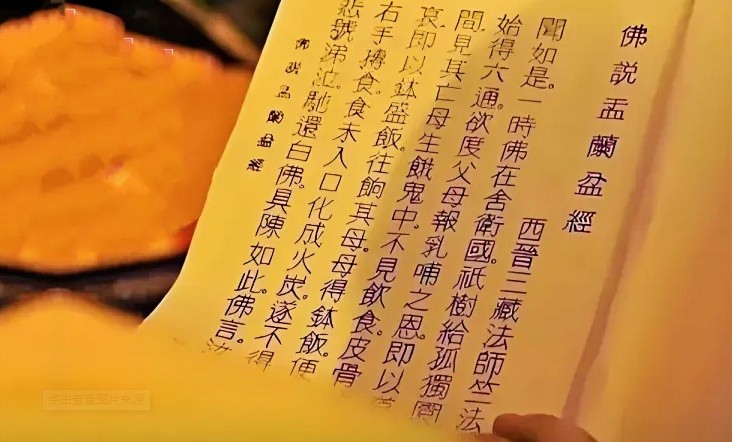 佛説盂蘭盆經
西晉三藏法師竺法
聞如是。一時佛在舍衛國。祇樹給孤獨園
始得六通。欲度父母報乳哺之恩。即以
間見其亡母生餓鬼中。不見飲食。皮骨
哀。即以鉢盛飯。往餉其母。母得鉢飯。便
右手摶食。食未入口。化成火炭。遂不得
悲號涕泣。馳還白佛。具陳如此。佛言。
佛説盂蘭盆經
点击查看图片来源